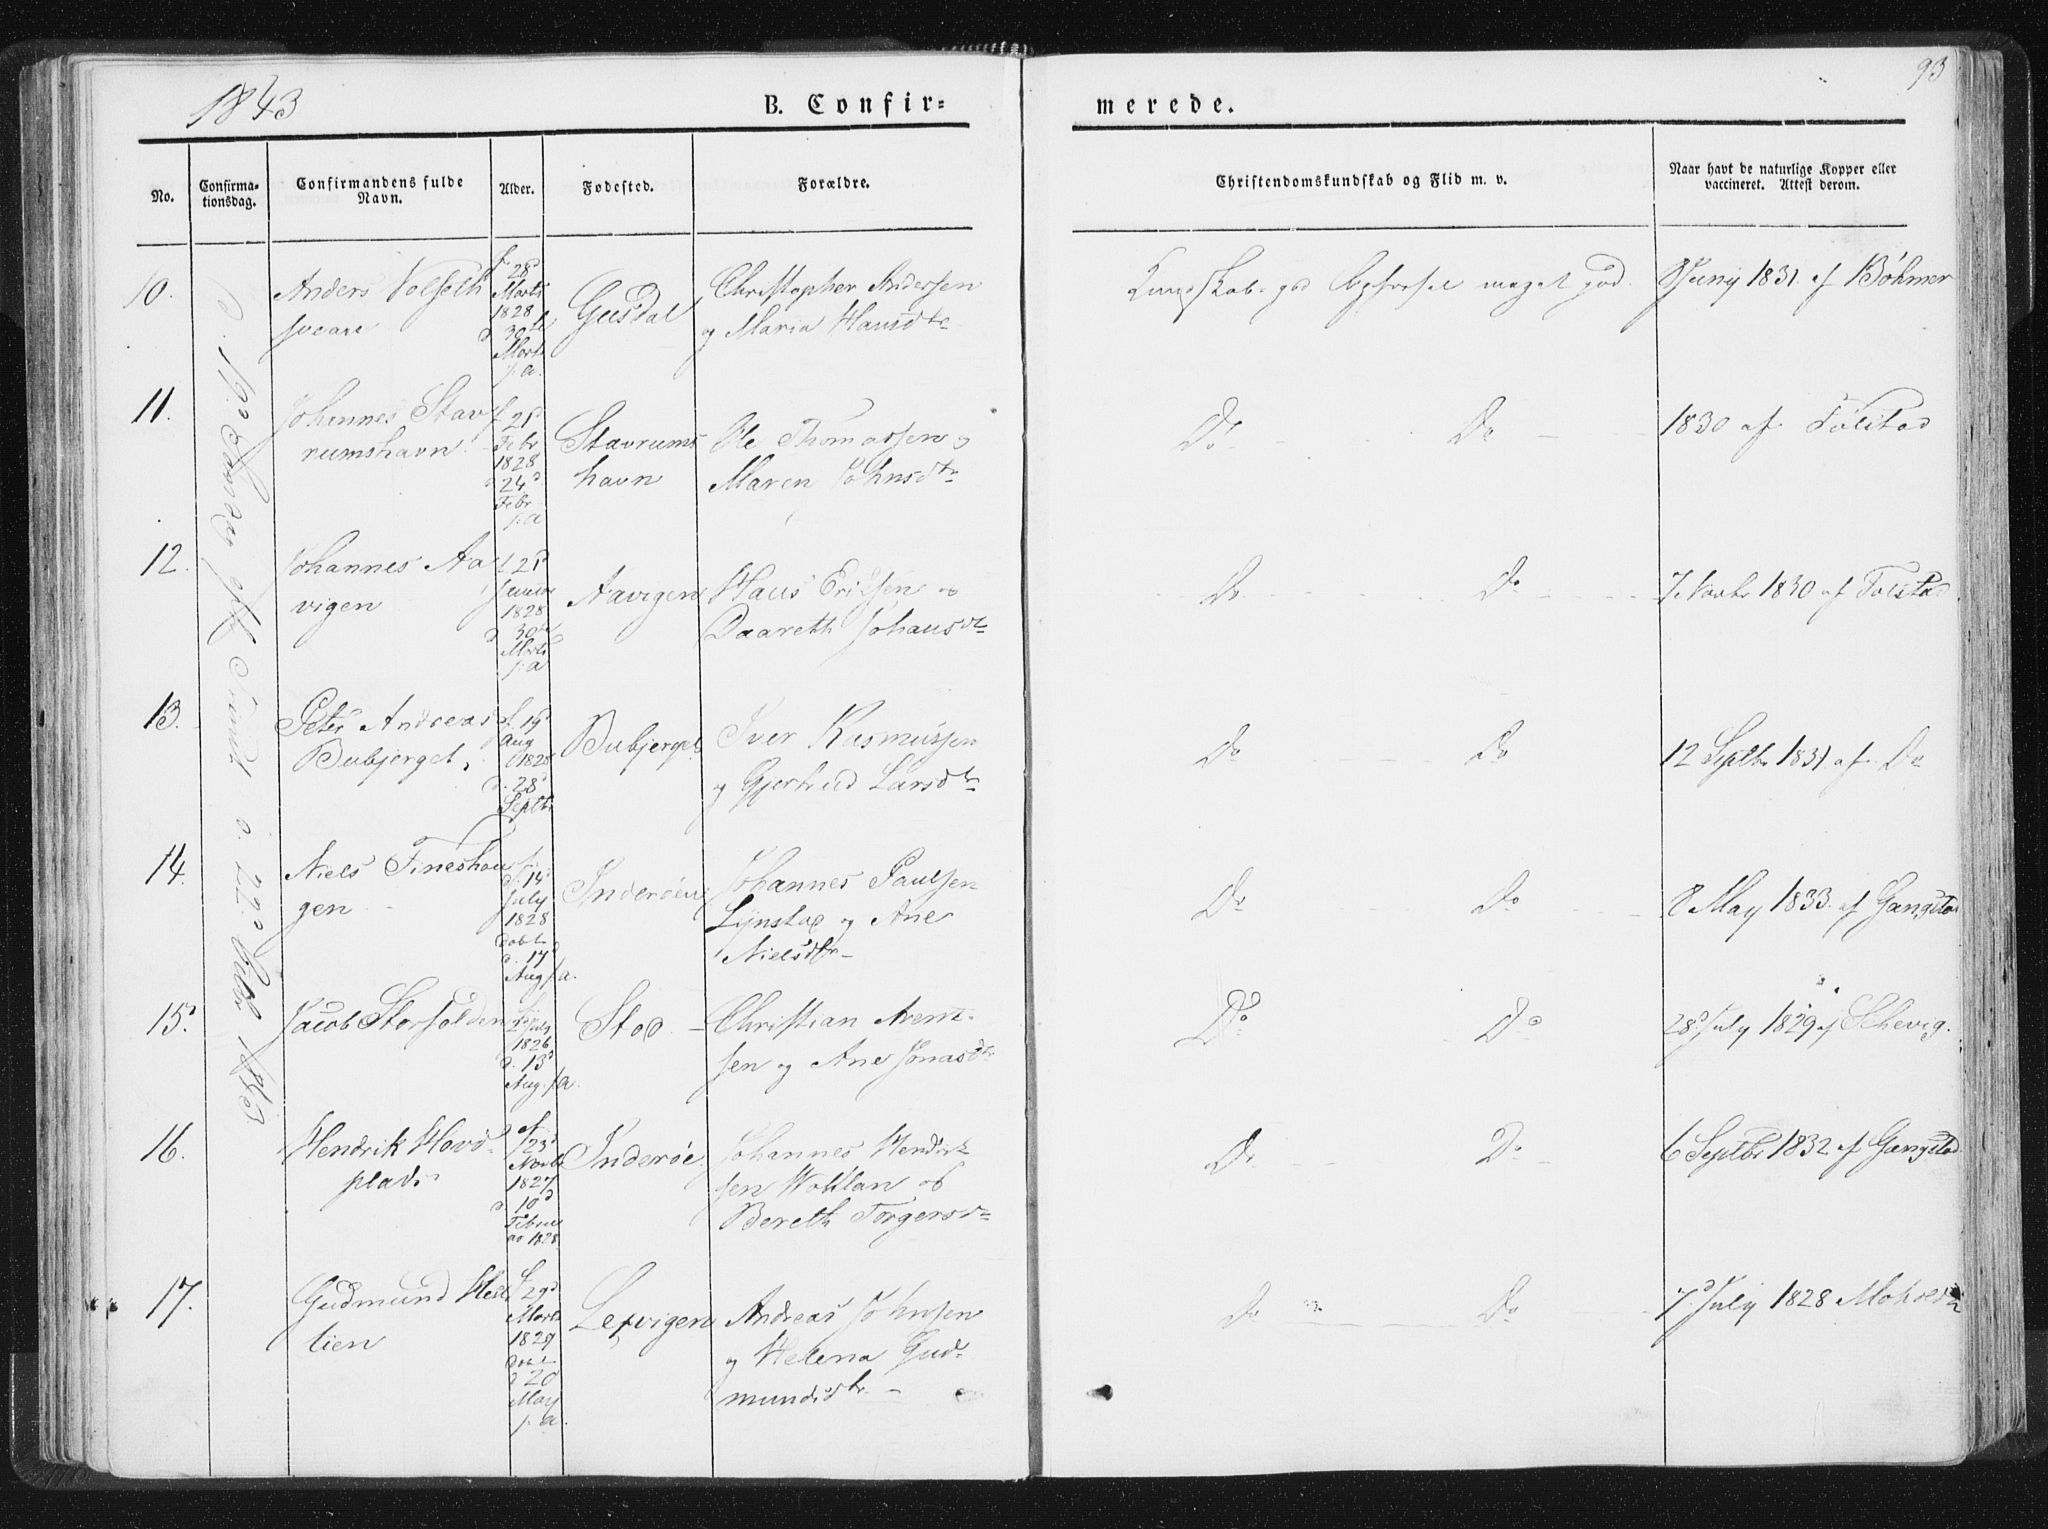 1843
B. Confir=
merede.
93
No.
Confirma-
tionsdag.
Confirmandens fulde
Navn.
Alder.
Fodested.
Forældre.
Christendomskundskab og Flid m. v.
Naar havt de naturlige Kopper eller
vaccineret. Attest derom.
10.
Anders
sveare
f.
28d
Marti
1828
d 30te
Marti
s. a.
Gusdal
Christopher Andersen
og Maria Hansdtr
Kundskab god Opførsel meget god.
8 Juny 1831. af Böhmer
11.
Johannes Stav
rumshavn
f. 21
Febr
1828
24d
Febr
s. a
Stavrums
havn
Ole Thomassen og
Maren Johnsdtr
Do Do
1830 af Tølstad
12.
Johannes Aa
vigen
1828
d 30te
Marti
s. a
Aavigen
Hans Ericksen og
Daareth Johansdtr
Do Do
7 Novbr 1830 af Tølstad
13.
Peter Andreas
Bubjerget
f. 15d
Aug
1828
d. 28d
Septbr
Bubjerget
Iver Rasmussen
og Gjertrud Larsdtr
Do Do
12 Septbr 1831 af Do
14.
Niels Fineshau
gen
f.
d. 14d
July
1828
døbt
d. 17d
Aug s. a.
Inderøen
Johannes Paulsen
og Ane
Nielsdtr
Do Do
8 May 1833. af Gangstad
15.
Jacob Storfolden
July
1826
d. 13d
Aug. s. a.
Stod
Christian Arent-
sen og Ane Jonasdtr
Do Do
28d July 1829 af Schevig.
16.
Hendrik Hovd
plads
f.
23d
Novbr
1827
d. 10d
Februa
ar 1828
Inderøe
Johannes Hendrik
sen og
Bereth Torgersdtr
Do Do
6 Septbr 1832 af Gangstad
17.
Gudmund Hest
lien
f. 29d
Marti
1827
d 20
May
s. a.
Lexvigen
Andreas Johnsen
og Helena Gud-
mundsdtr
Do Do
7d July 1828